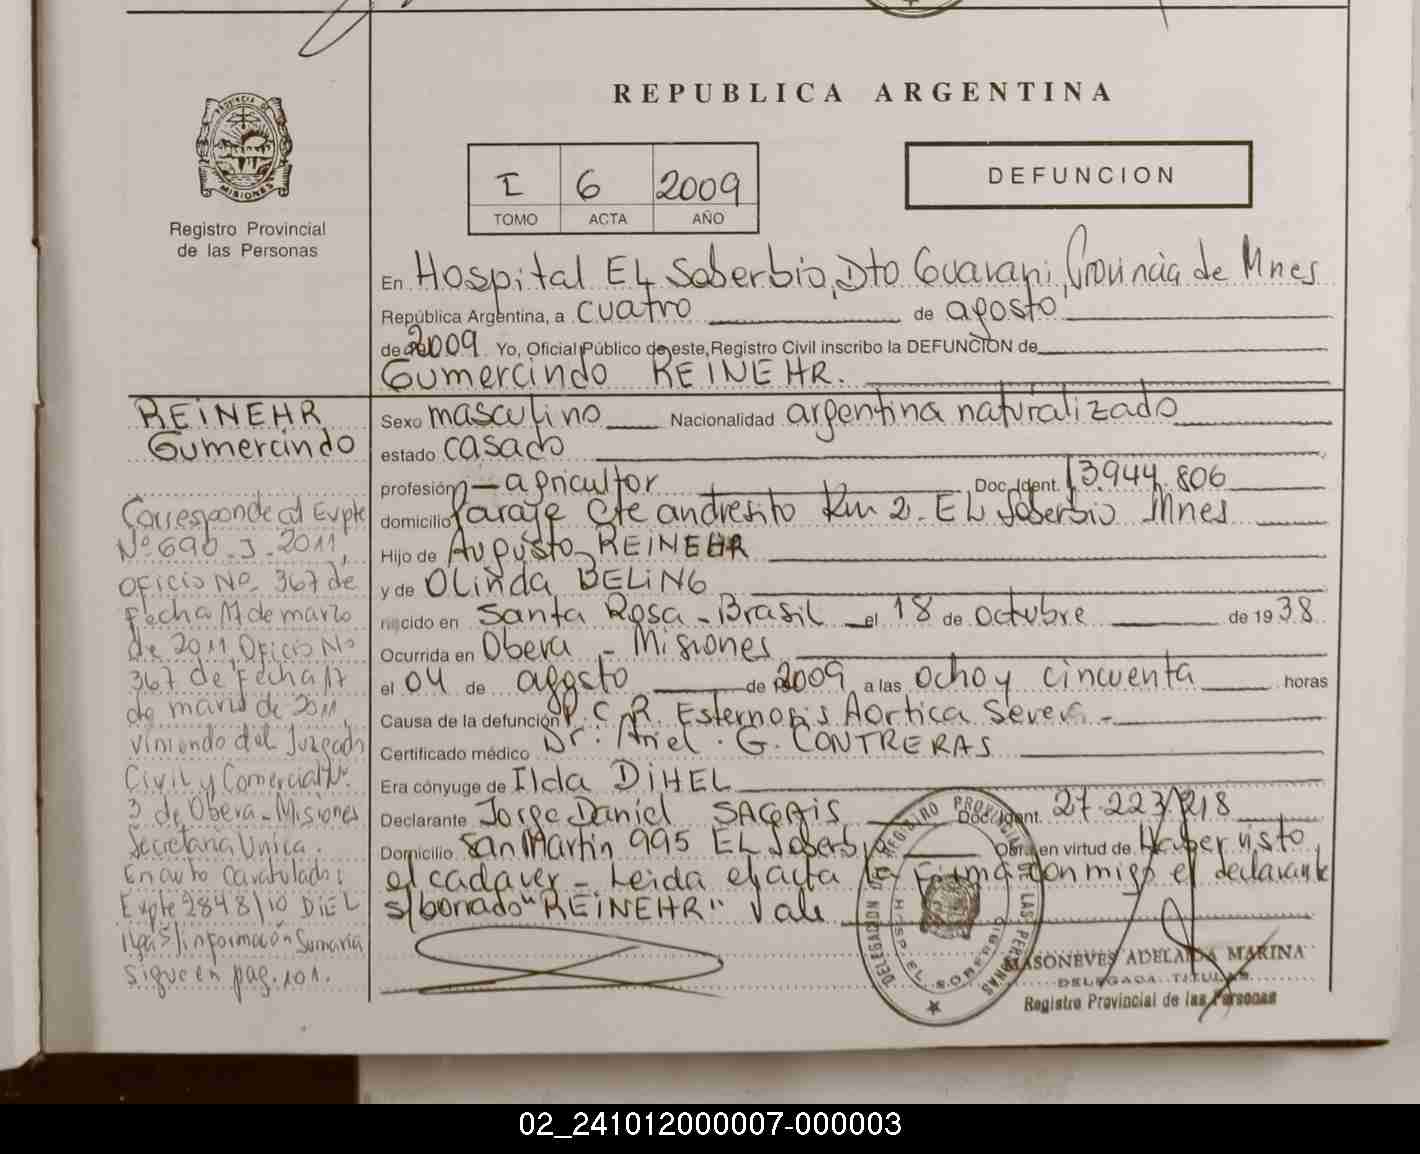 REPUBLICA ARGENTINA
PROVINCIA DE
MISIONES
Registro Provincial
de las Personas
I 6 2009
TOMO ACTA AÑO
DEFUNCION
En Hospital EL Soberbio, Dto Guarani, Provincia de Mnes
República Argentina, a cuatro de agosto
de 2009 Yo, Oficial Público de este, Registro Civil inscribo la DEFUNCION de
Gumercindo REINEHR.
REINEHR
Gumercindo
Corresponde al Expte
Nº 690-J-2011,
Oficio No. 367 de
fecha 17 de marzo
de 2011, Oficio No
367 de fecha 17
de marzo de 2011,
viniendo del Juzgado
Civil y Comercial Nº
3 de Obera-Misiones
Secretaria Unica.
En autos Caratulados:
Expte 2848/10 DIEL
Ilga s/informacion Sumaria
sigue en pag. 101.
Sexo masculino Nacionalidad argentina naturalizado
estado casado
profesión - agricultor Doc. Ident. 13.944.806
domicilio Paraje Cte andresito Km 2. EL Soberbio Mnes
Hijo de Augusto REINEHR
y de Olinda BELING
nacido en Santa Rosa - Brasil el 18 de octubre de 1938
Ocurrida en Obera - Misiones
el 04 de agosto de 2009 a las ocho y cincuenta horas
Causa de la defunción P.C.R. Esternosis Aortica Severa -
Certificado médico Dr: Ariel. G. CONTRERAS
Era cónyuge de Ilda DIHEL
Declarante Jorge Daniel Doc. Ident. 27.223.218
Domicilio San Martin 995 EL Soberbio Obra en virtud de Haber visto
el cadaver - Leida el acta la firma conmigo el declarante
s/borrado "REINEHR" Vale
DELEGACION DE REGISTRO PROVINCIAL DE LAS PERSONAS
HOSP. EL SOBERBIO
MASONEVES ADELAIDA MARINA
DELEGADA TITULAR
Registro Provincial de las Personas
02_241012000007-000003